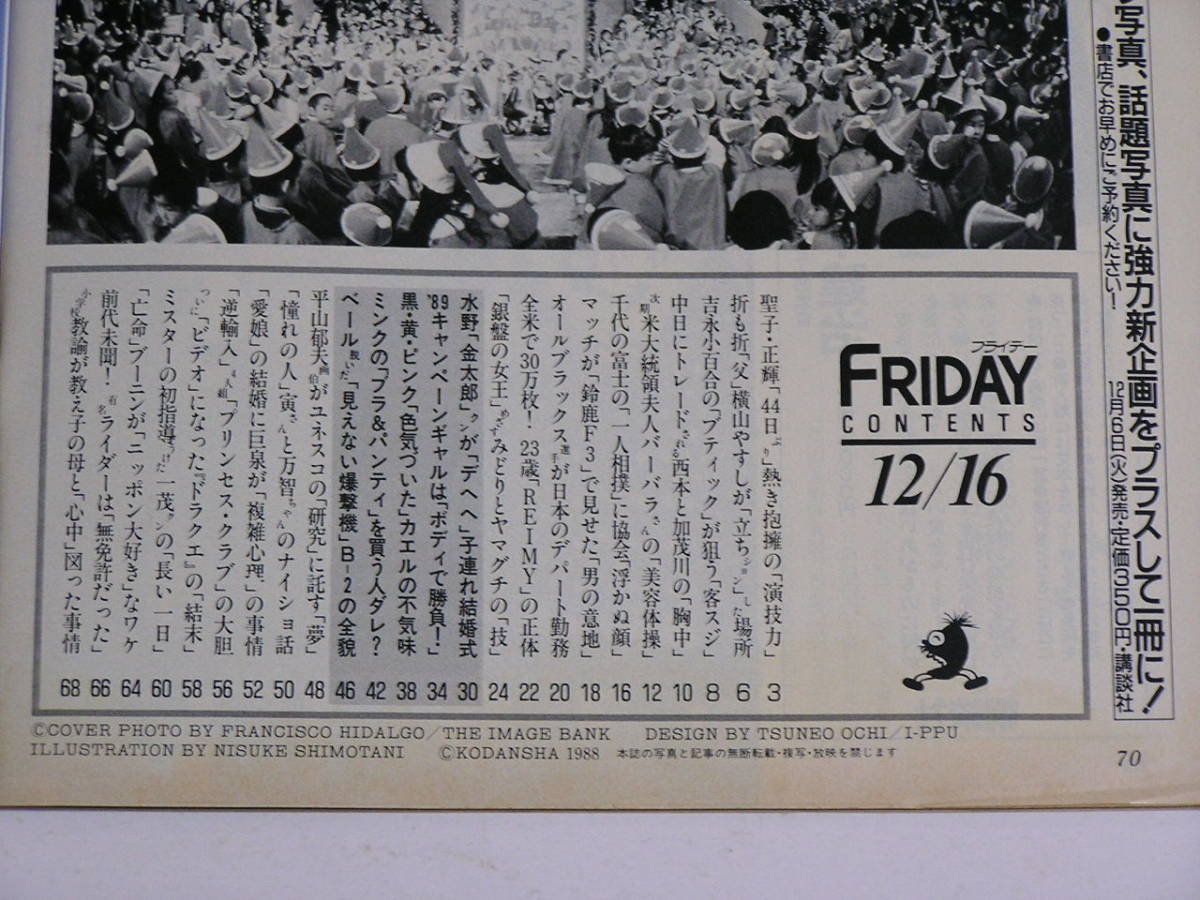 写真、話題写真に強力新企画をプラスして一冊に!
●書店でお早めにご予約ください!
12月6日(火)発売・定価350円・講談社
フライデー
FRIDAY
CONTENTS
12/16
聖子・正輝「44日ぶり」熱き抱擁の「演技力」 3
折も折「父」横山やすしが「立ちション」した場所 6
吉永小百合の「ブティック」が狙う「客スジ」 8
中日にトレードされる西本と加茂川の「胸中」 10
次期米大統領夫人バーバラさんの「美容体操」 12
千代の富士の「一人相撲」に協会「浮かぬ顔」 16
マッチが「鈴鹿F3」で見せた「男の意地」 18
オールブラックス選手が日本のデパート勤務 20
全米で30万枚! 23歳「REIMY」の正体 22
「銀盤の女王」めざすみどりとヤマグチの「技」 24
水野「金太郎」クンが「デヘヘ」子連れ結婚式 30
'89キャンペーンギャルは「ボディで勝負!」 34
黒・黄・ピンク「色気づいた」カエルの不気味 38
ミンクの「ブラ&パンティ」を買う人ダレ? 42
ベール脱いだ「見えない爆撃機」B-2の全貌 46
平山郁夫画伯がユネスコの「研究」に託す「夢」 48
「憧れの人」寅さんと万智ちゃんのナイショ話 50
「愛娘」の結婚に巨泉が「複雑心理」の事情 52
「逆輸入」4人組「プリンセス・クラブ」の大胆 56
ついに「ビデオ」になった『ドラクエ』の「結末」 58
ミスターの初指導うけた一茂クンの「長い一日」 60
「亡命」ブーニンが「ニッポン大好き」なワケ 64
前代未聞! 有名ライダーは「無免許だった」 66
小学校教諭が教え子の母と「心中」図った事情 68
©COVER PHOTO BY FRANCISCO HIDALGO/THE IMAGE BANK DESIGN BY TSUNEO OCHI/I-PPU
ILLUSTRATION BY NISUKE SHIMOTANI ©KODANSHA 1988 本誌の写真と記事の無断転載・複写・放映を禁じます
70